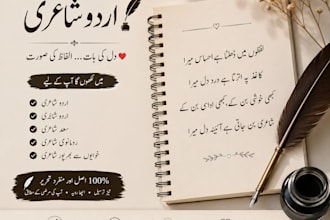 اردو شاعری
دل کی بات... الفاظ کی صورت
میں لکھوں گا آپ کے لیے
اردو شاعری
اردو شاعری
سعد شاعری
رومانوی شاعری
خوابوں سے بھرپور شاعری
100% اصل اور منفرد تحریر
آپ کی مرضی کے مطابق
لفظوں میں ڈھلتا ہے احساس میرا
کاغذ پہ اترتا ہے درد دل میرا
کبھی خوشی بن کے، کبھی اداسی بن کے
شاعری بن جاتی ہے آئینہ دل میرا